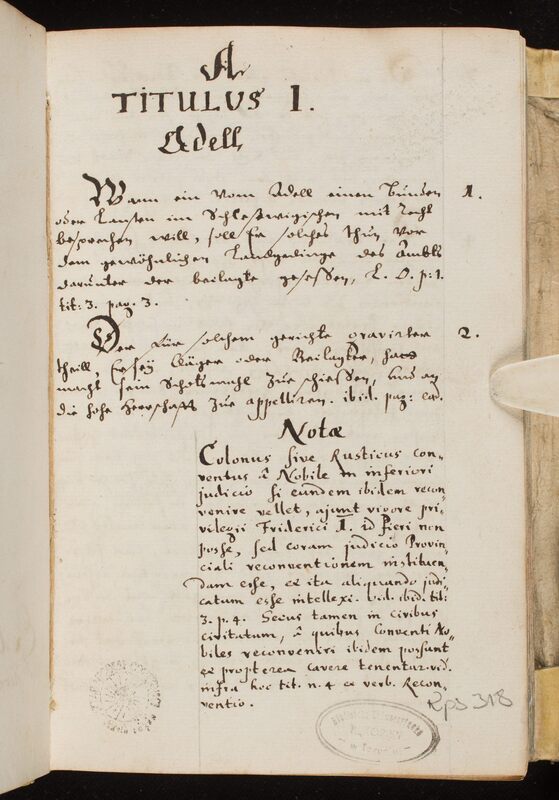 A
TITULUS I.
Adell
Wann ein vom Adell einen Bunden 1.
oder Lansten im Schleswigischen mit Recht
besprechen will, soll Er solches thun vor
dem gewöhnlichen Landgedinge des Ambts
darunter der beilagte gesessen, L. O. p: 1.
tit: 3. pag. 3.
Der für solchem gerichte gravirter 2.
theill, Er sey Kläger oder Beilagter, hat
macht sein zue schiessen, und an
die hohe Herrschafft zue appelliren. ibid. pag: ead.
Notæ
Colonus sive Rusticus con„
ventus â Nobile in inferiori
judicio si eundem ibidem recon„
venire vellet, ajunt vigore pri„
vilegii Friderici I. id fieri non
posse, sed coram judicio Provin„
ciali reconventionem instituen„
dam esse, et ita aliquando judi„
catum esse intellexi. vid. ibid. tit:
3. p. 4. Secus tamen in civibus
civitatum, â quibus Conventi No„
biles reconveniri ibidem possunt
et propterea cavere tenentur. vid.
infra hoc tit. n. 4 et verb. Recon„
ventio.
Rps 318